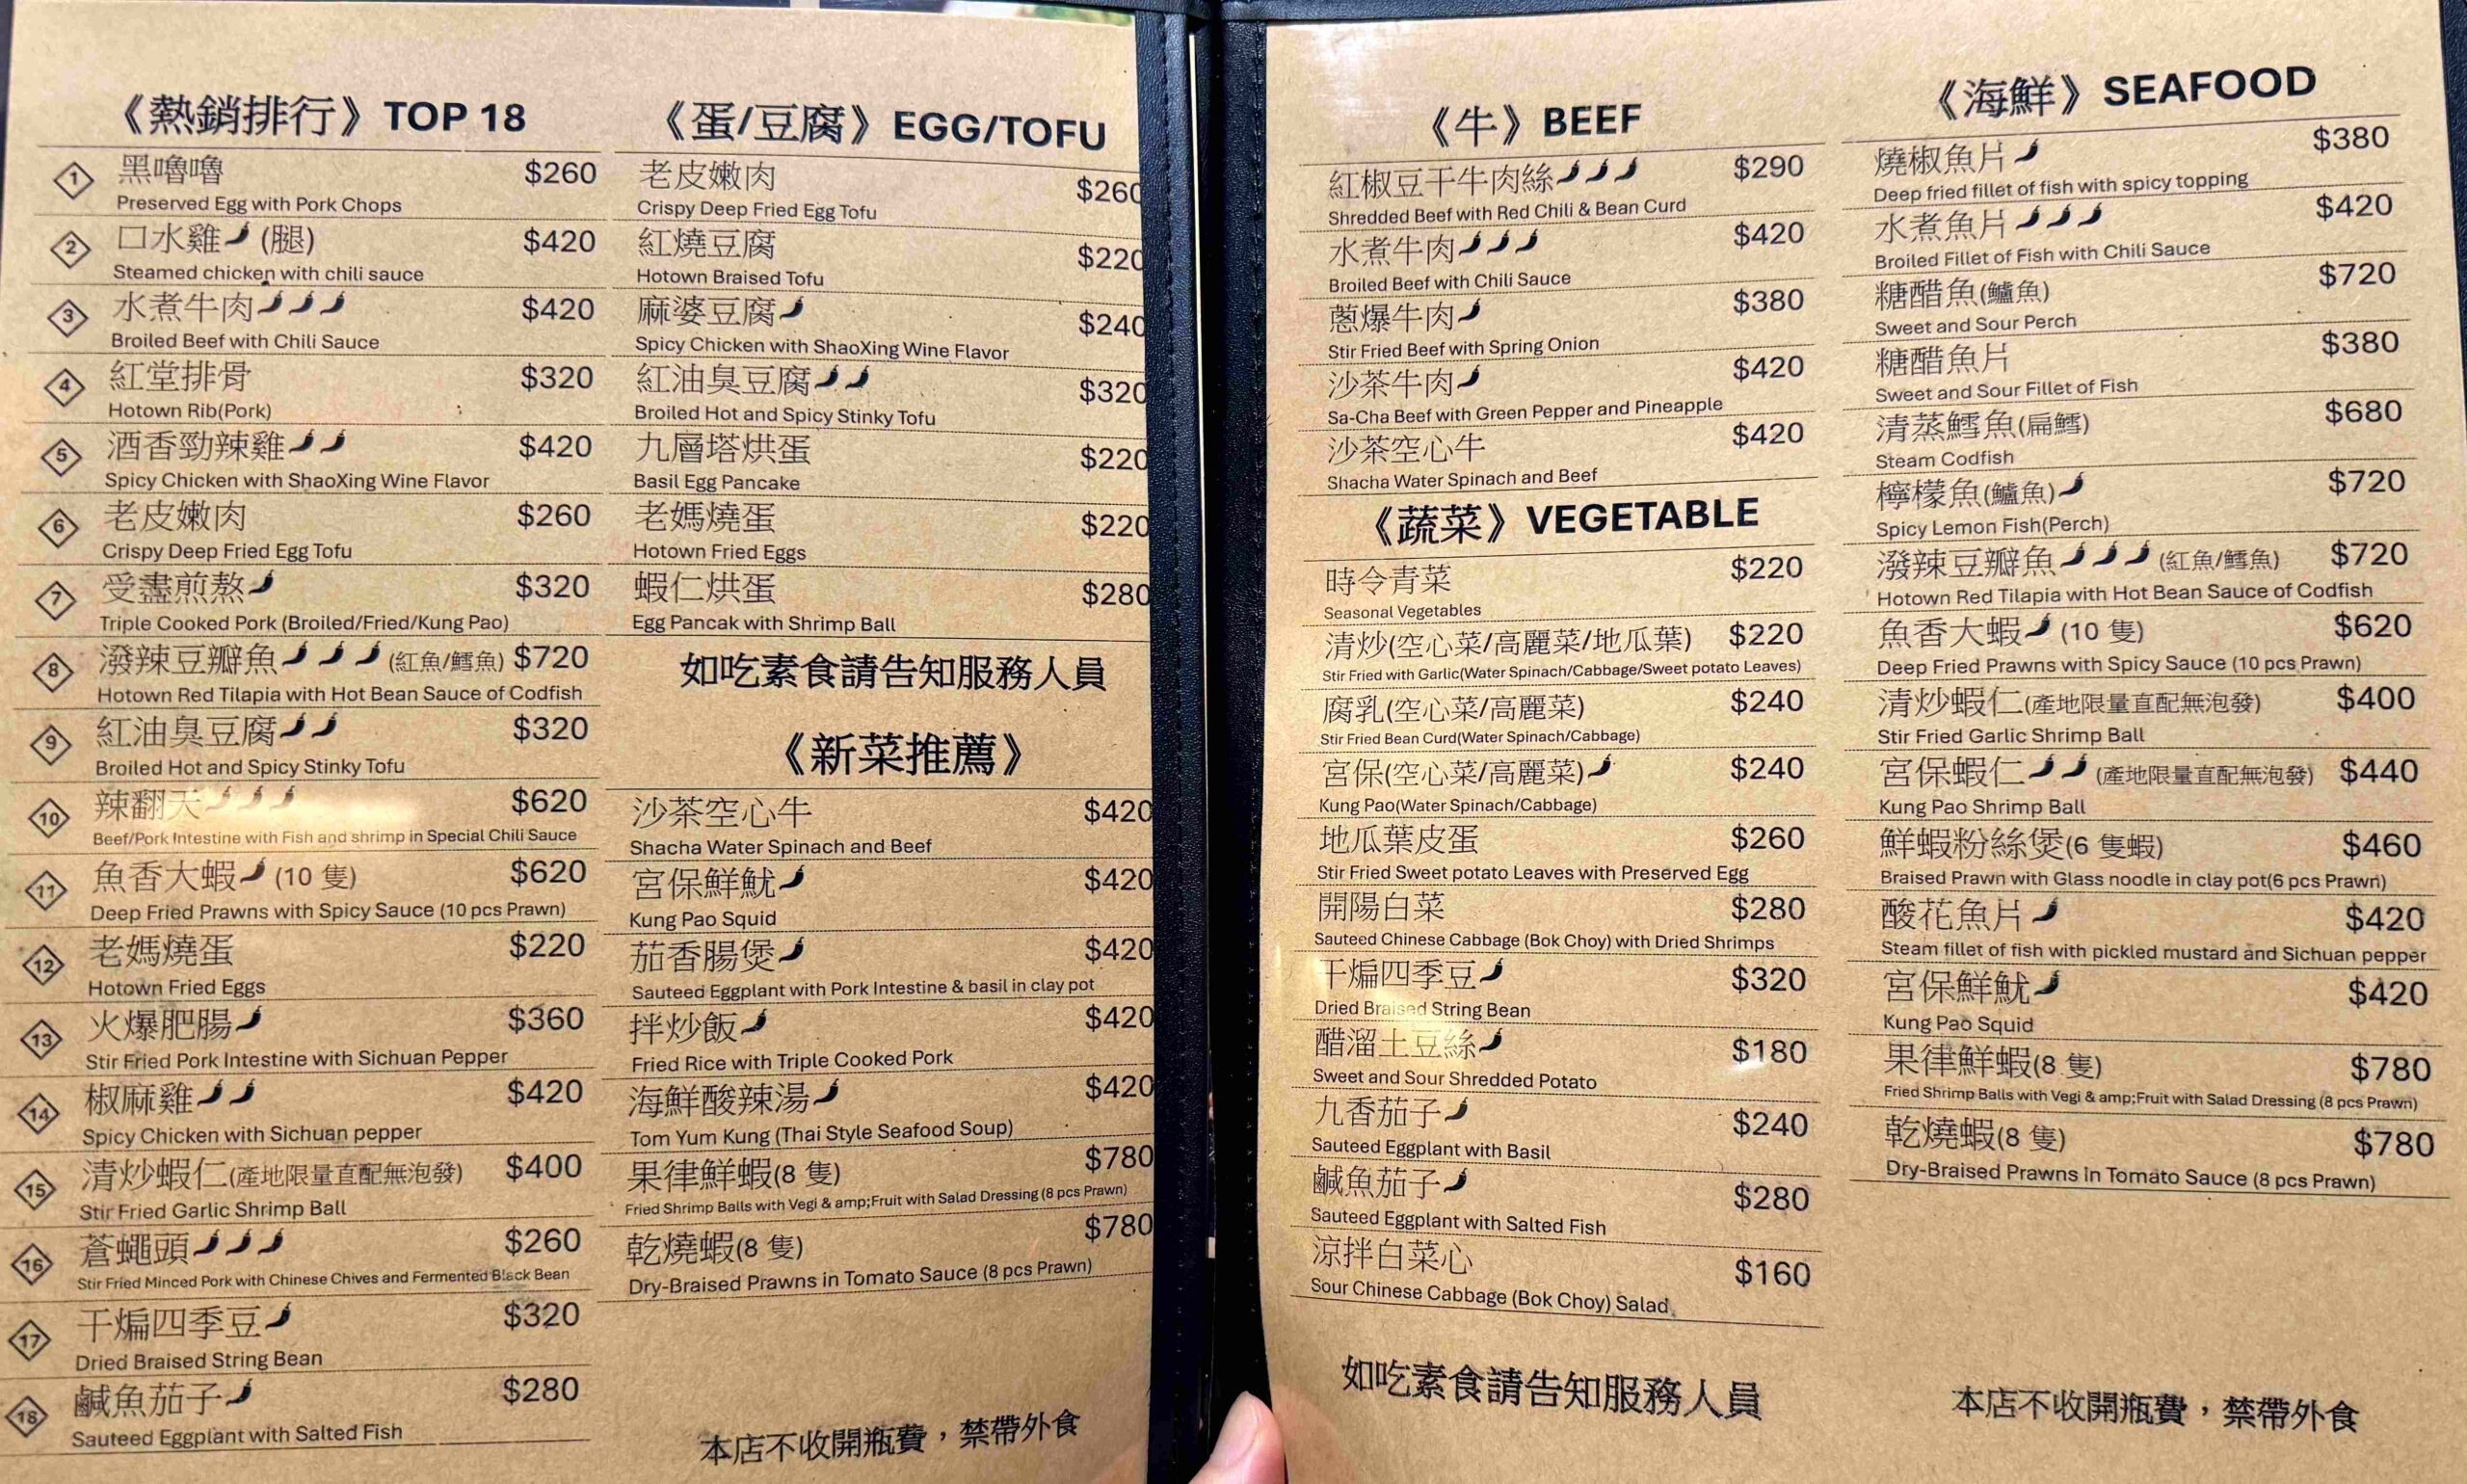 《熱銷排行》TOP 18
1 黑嚕嚕 $260
Preserved Egg with Pork Chops
2 口水雞 (腿) $420
Steamed chicken with chili sauce
3 水煮牛肉 $420
Broiled Beef with Chili Sauce
4 紅堂排骨 $320
Hotown Rib(Pork)
5 酒香勁辣雞 $420
Spicy Chicken with ShaoXing Wine Flavor
6 老皮嫩肉 $260
Crispy Deep Fried Egg Tofu
7 受盡煎熬 $320
Triple Cooked Pork (Broiled/Fried/Kung Pao)
8 潑辣豆瓣魚 (紅魚/鱈魚) $720
Hotown Red Tilapia with Hot Bean Sauce of Codfish
9 紅油臭豆腐 $320
Broiled Hot and Spicy Stinky Tofu
10 辣翻天 $620
Beef/Pork Intestine with Fish and shrimp in Special Chili Sauce
11 魚香大蝦 (10 隻) $620
Deep Fried Prawns with Spicy Sauce (10 pcs Prawn)
12 老媽燒蛋 $220
Hotown Fried Eggs
13 火爆肥腸 $360
Stir Fried Pork Intestine with Sichuan Pepper
14 椒麻雞 $420
Spicy Chicken with Sichuan pepper
15 清炒蝦仁(產地限量直配無泡發) $400
Stir Fried Garlic Shrimp Ball
16 蒼蠅頭 $260
Stir Fried Minced Pork with Chinese Chives and Fermented Black Bean
17 干煸四季豆 $320
Dried Braised String Bean
18 鹹魚茄子 $280
Sauteed Eggplant with Salted Fish
《蛋/豆腐》EGG/TOFU
老皮嫩肉 $260
Crispy Deep Fried Egg Tofu
紅燒豆腐 $220
Hotown Braised Tofu
麻婆豆腐 $240
Spicy Chicken with ShaoXing Wine Flavor
紅油臭豆腐 $320
Broiled Hot and Spicy Stinky Tofu
九層塔烘蛋 $220
Basil Egg Pancake
老媽燒蛋 $220
Hotown Fried Eggs
蝦仁烘蛋 $280
Egg Pancak with Shrimp Ball
如吃素食請告知服務人員
《新菜推薦》
沙茶空心牛 $420
Shacha Water Spinach and Beef
宮保鮮魷 $420
Kung Pao Squid
茄香腸煲 $420
Sauteed Eggplant with Pork Intestine & basil in clay pot
拌炒飯 $420
Fried Rice with Triple Cooked Pork
海鮮酸辣湯 $420
Tom Yum Kung (Thai Style Seafood Soup)
果律鮮蝦(8 隻) $780
Fried Shrimp Balls with Vegi & amp;Fruit with Salad Dressing (8 pcs Prawn)
乾燒蝦(8 隻) $780
Dry-Braised Prawns in Tomato Sauce (8 pcs Prawn)
本店不收開瓶費，禁帶外食
《牛》BEEF
紅椒豆干牛肉絲 $290
Shredded Beef with Red Chili & Bean Curd
水煮牛肉 $420
Broiled Beef with Chili Sauce
蔥爆牛肉 $380
Stir Fried Beef with Spring Onion
沙茶牛肉 $420
Sa-Cha Beef with Green Pepper and Pineapple
沙茶空心牛 $420
Shacha Water Spinach and Beef
《蔬菜》VEGETABLE
時令青菜 $220
Seasonal Vegetables
清炒(空心菜/高麗菜/地瓜葉) $220
Stir Fried with Garlic(Water Spinach/Cabbage/Sweet potato Leaves)
腐乳(空心菜/高麗菜) $240
Stir Fried Bean Curd(Water Spinach/Cabbage)
宮保(空心菜/高麗菜) $240
Kung Pao(Water Spinach/Cabbage)
地瓜葉皮蛋 $260
Stir Fried Sweet potato Leaves with Preserved Egg
開陽白菜 $280
Sauteed Chinese Cabbage (Bok Choy) with Dried Shrimps
干煸四季豆 $320
Dried Braised String Bean
醋溜土豆絲 $180
Sweet and Sour Shredded Potato
九香茄子 $240
Sauteed Eggplant with Basil
鹹魚茄子 $280
Sauteed Eggplant with Salted Fish
涼拌白菜心 $160
Sour Chinese Cabbage (Bok Choy) Salad
如吃素食請告知服務人員
《海鮮》SEAFOOD
燒椒魚片 $380
Deep fried fillet of fish with spicy topping
水煮魚片 $420
Broiled Fillet of Fish with Chili Sauce
糖醋魚(鱸魚) $720
Sweet and Sour Perch
糖醋魚片 $380
Sweet and Sour Fillet of Fish
清蒸鱈魚(扁鱈) $680
Steam Codfish
檸檬魚(鱸魚) $720
Spicy Lemon Fish(Perch)
潑辣豆瓣魚 (紅魚/鱈魚) $720
Hotown Red Tilapia with Hot Bean Sauce of Codfish
魚香大蝦 (10 隻) $620
Deep Fried Prawns with Spicy Sauce (10 pcs Prawn)
清炒蝦仁(產地限量直配無泡發) $400
Stir Fried Garlic Shrimp Ball
宮保蝦仁 (產地限量直配無泡發) $440
Kung Pao Shrimp Ball
鮮蝦粉絲煲(6 隻蝦) $460
Braised Prawn with Glass noodle in clay pot(6 pcs Prawn)
酸花魚片 $420
Steam fillet of fish with pickled mustard and Sichuan pepper
宮保鮮魷 $420
Kung Pao Squid
果律鮮蝦(8 隻) $780
Fried Shrimp Balls with Vegi & amp;Fruit with Salad Dressing (8 pcs Prawn)
乾燒蝦(8 隻) $780
Dry-Braised Prawns in Tomato Sauce (8 pcs Prawn)
本店不收開瓶費，禁帶外食